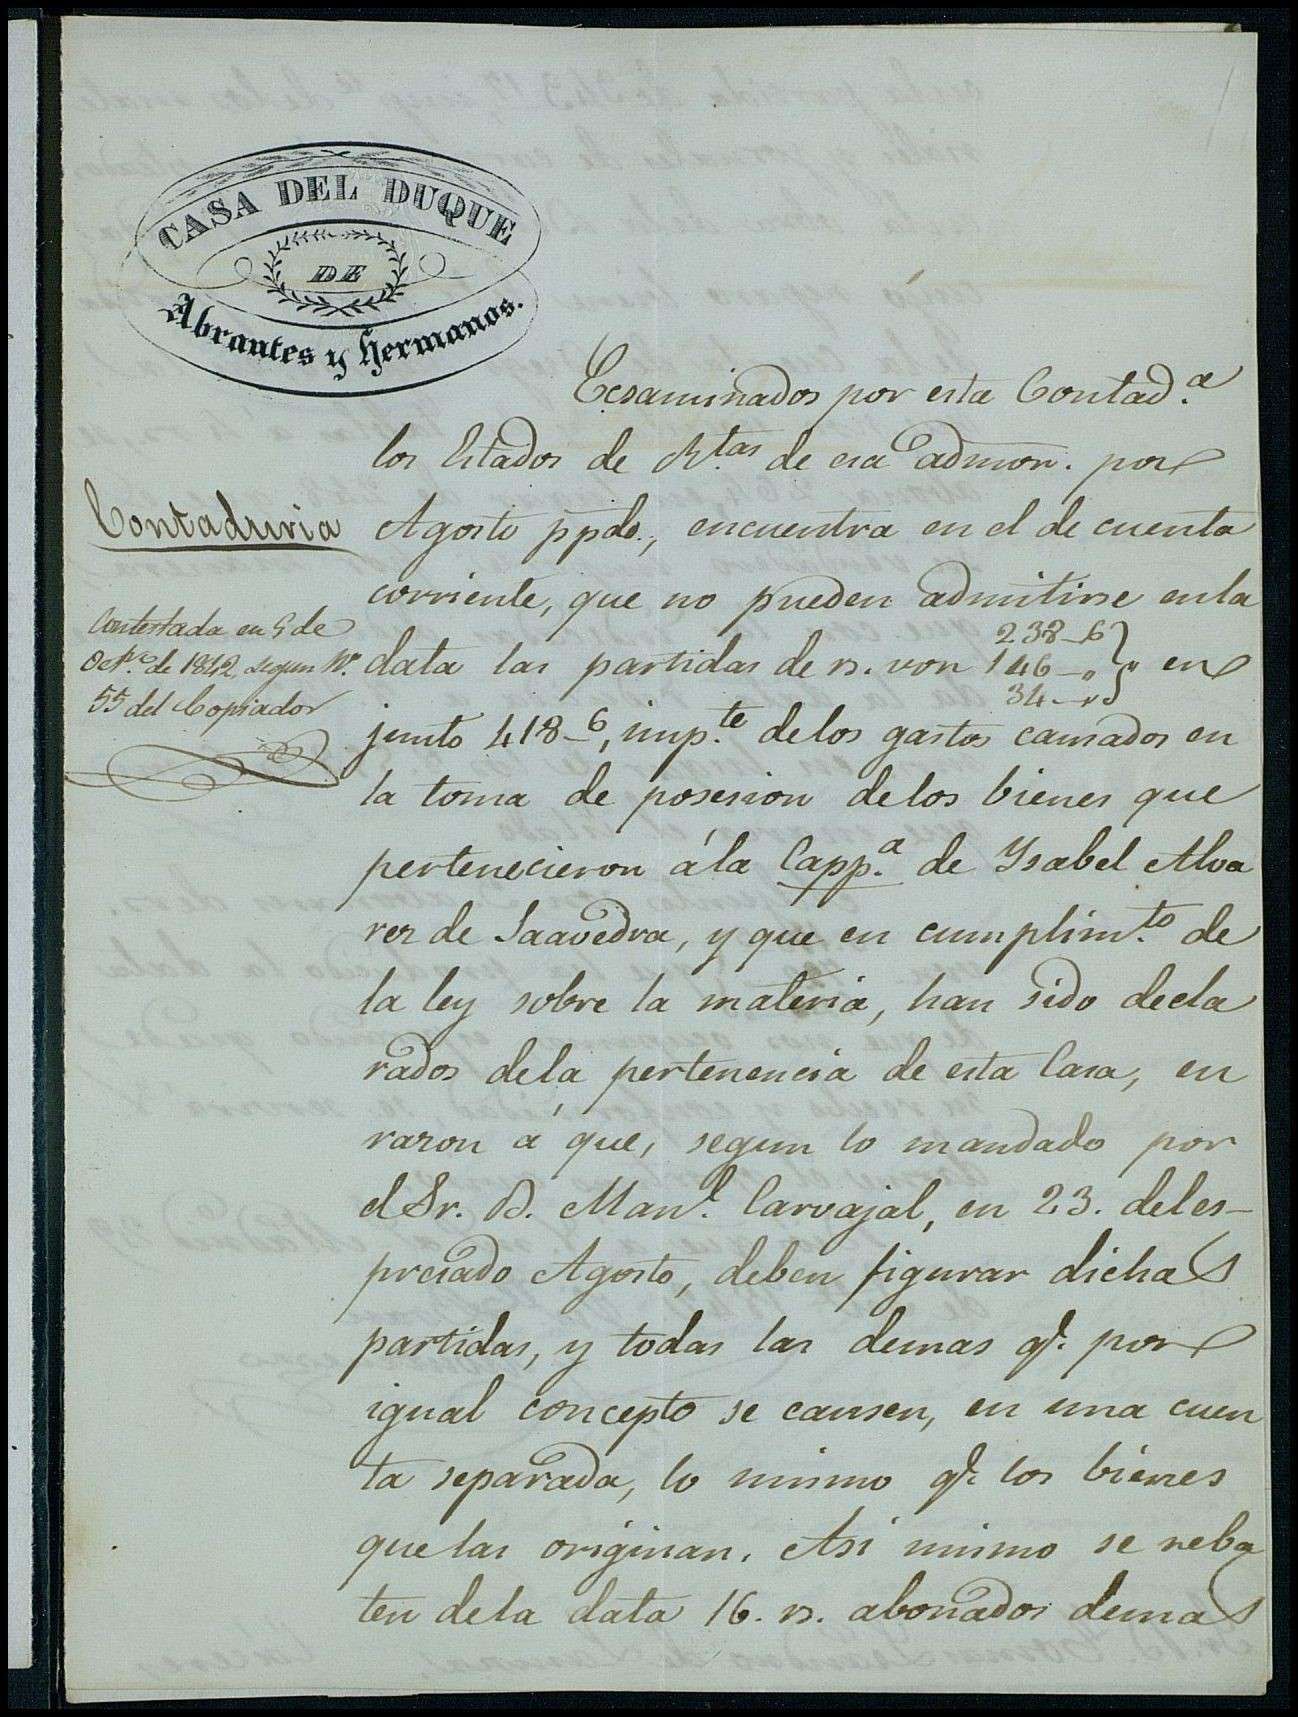 CASA DEL DUQUE
DE
Abrantes y Hermanos.
Ecsaminados por esta Contad.ª
los Estados de R.tas de esa admon. por
Contaduria
Agosto ppdo., encuentra en el de cuenta
corriente, que no pueden admitirse en la
Contestada en 5 de
Oct.e de 1842, segun N.º
55 del Copiador
data las partidas de rs. von 238_6 146_" 34_" } " en
junto 418_6, imp.te de los gastos causados en
la toma de posesion de los bienes que
pertenecieron á la Capp.ª de Ysabel Alva
rez de Saavedra, y que en cumplim.to de
la ley sobre la materia, han sido decla
rados de la pertenencia de esta Casa, en
razon á que, segun lo mandado por
el Sr. D. Man.l Carvajal, en 23. del es-
presado Agosto, deben figurar dichas
partidas, y todas las demas q.e por
igual concepto se causen, en una cuen
ta separada, lo mismo q.e los bienes
que las originan. Asi mismo se reba
ten de la data 16. rs. abonados demas